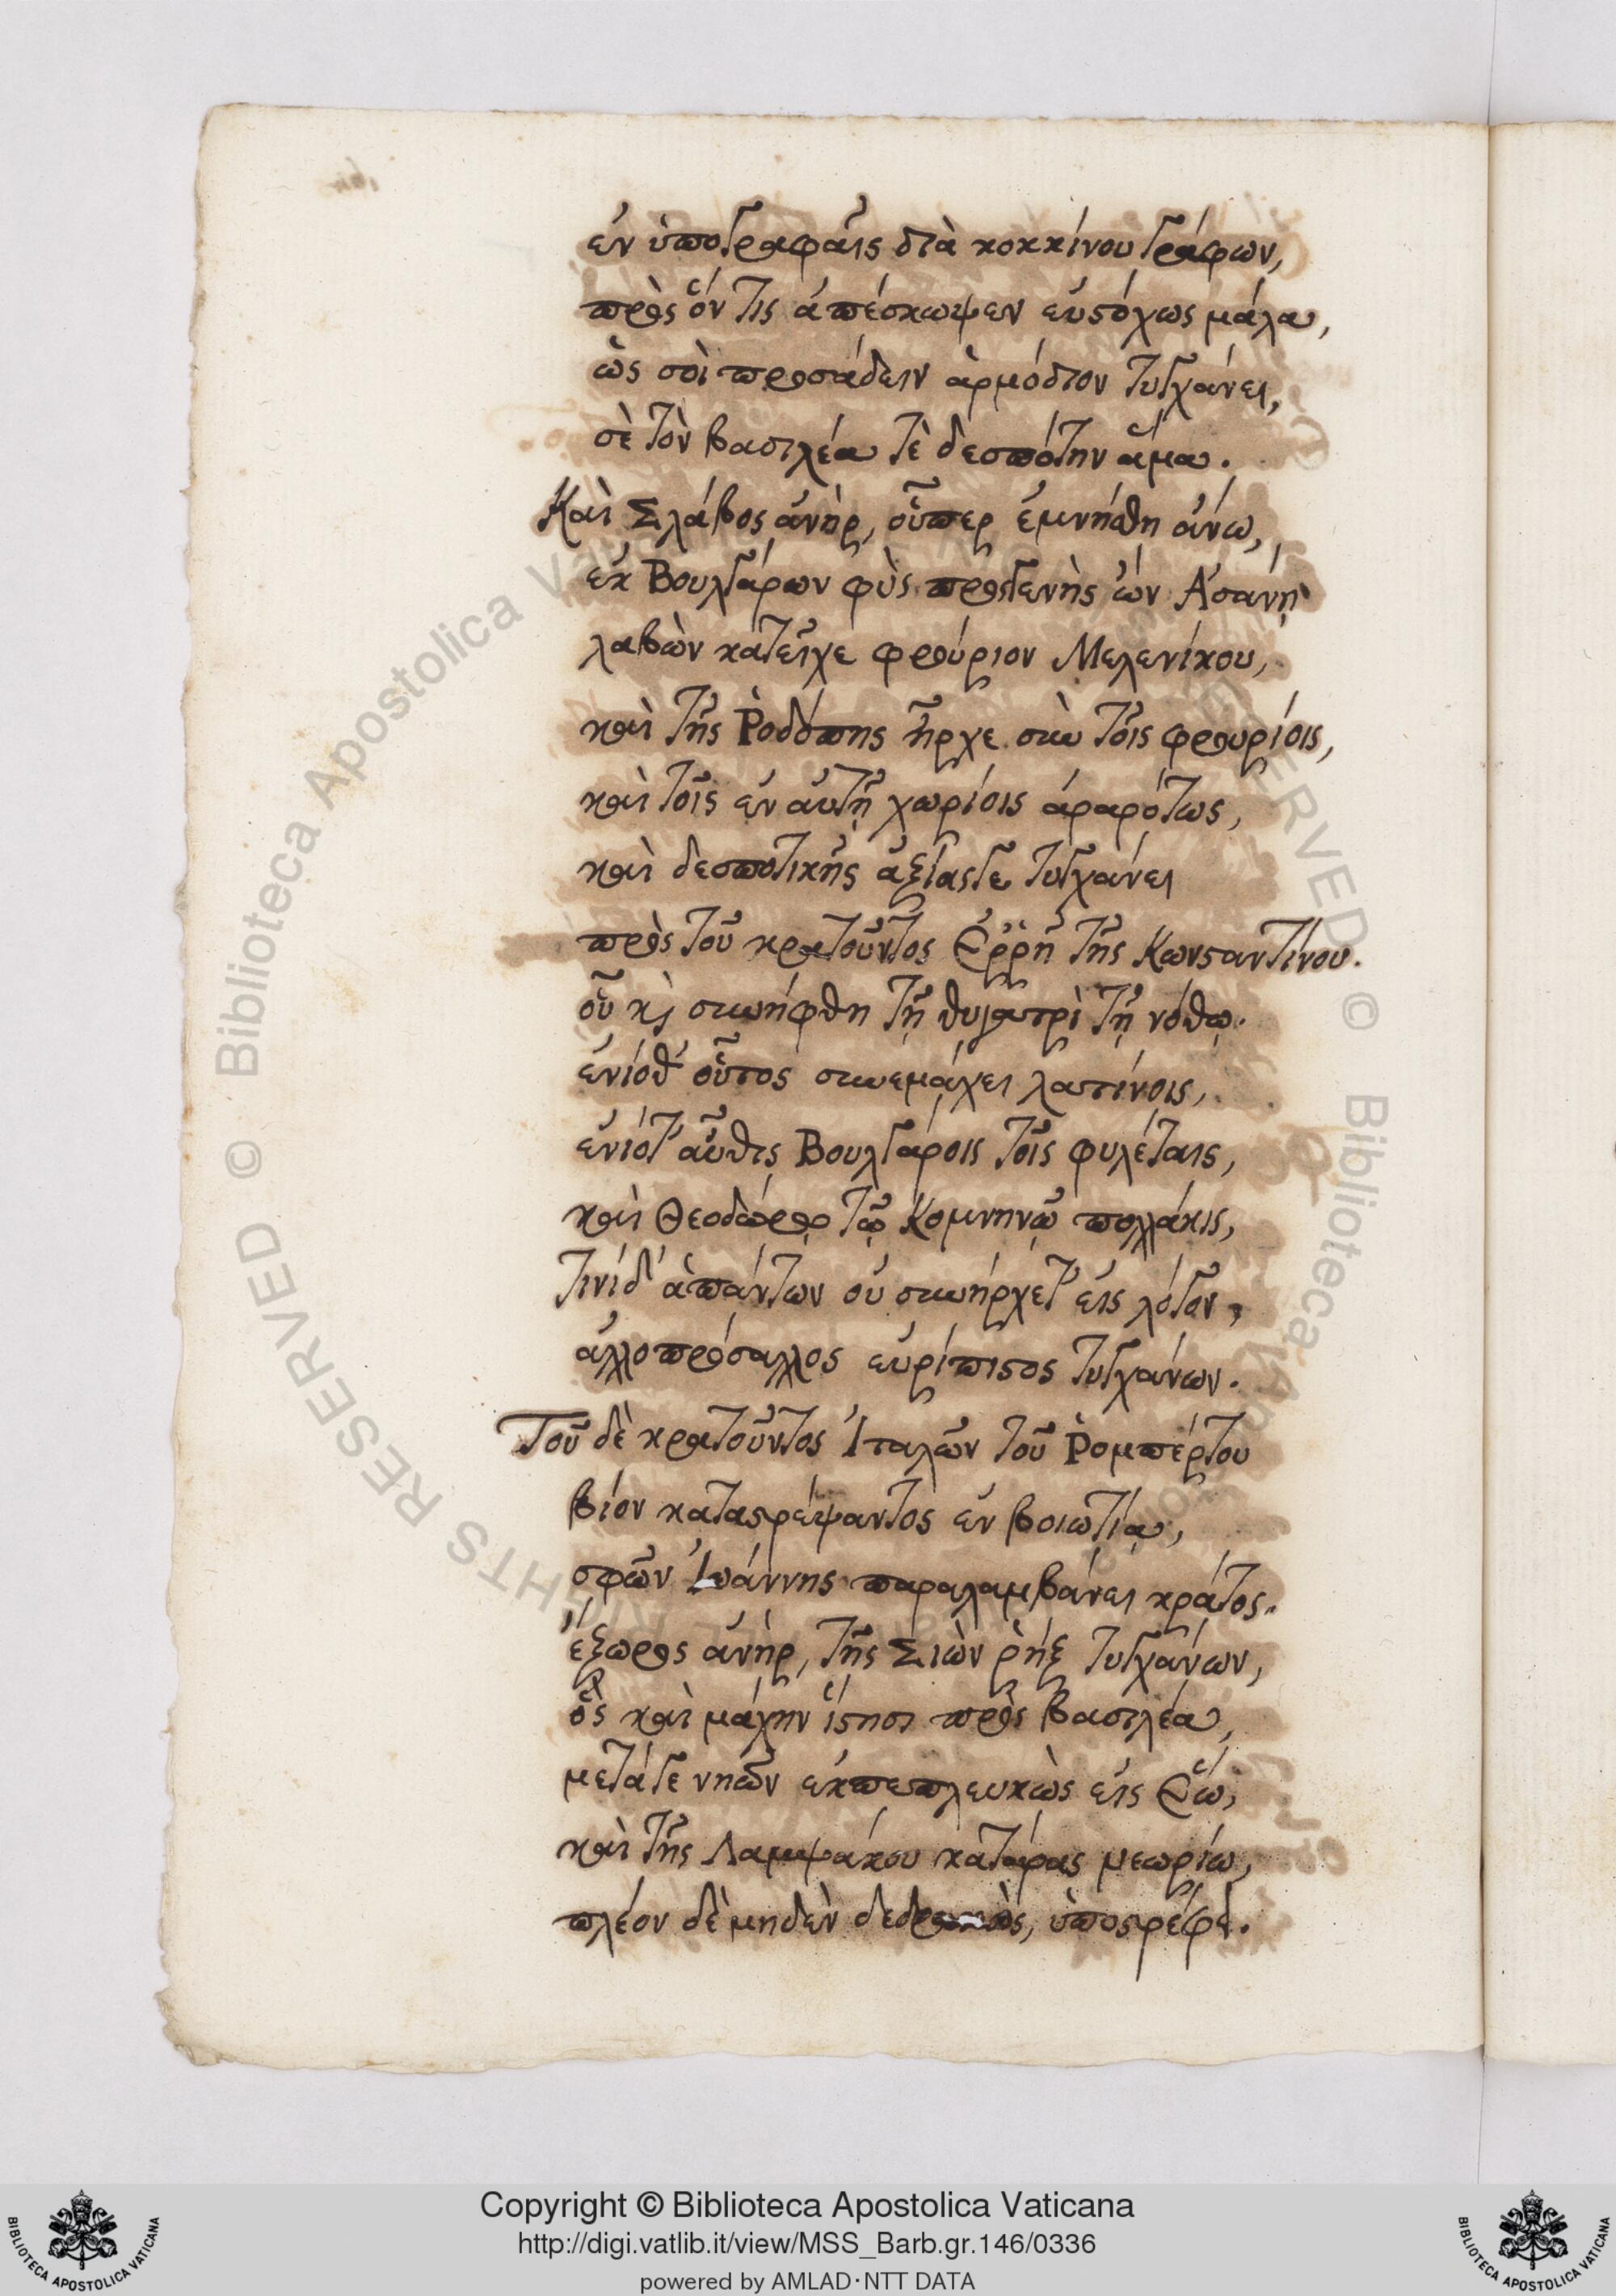 ἐν ὑπογραφαῖς διὰ κοκκίνου γράφων,
πρὸς ὅν τις ἀπέσκωψεν εὐστόχως μάλα,
ὡς σοὶ προσάδειν ἁρμόδιον τυγχάνει,
σὲ τὸν βασιλέα τὲ δεσπότην ἅμα.
Καὶ Σλάβος ἀνὴρ, οὗπερ ἐμνήσθη ἄνω,
ἐκ Βουλγάρων φὺς προσγενὴς ὢν Ἀσάνῃ
λαβὼν κατεῖχε φρούριον Μελενίκου,
καὶ τῆς Ῥοδόπης ἦρχε σὺν τοῖς φρουρίοις,
καὶ τοῖς ἐν αὐτῇ χωρίοις ἀραρότως,
καὶ δεσποτικῆς ἀξίας γε τυγχάνει
πρὸς τοῦ κρατοῦντος Ἐῤῥῆ τῆς Κωνσταντίνου.
οὗ καὶ συνήφθη τῇ θυγατρὶ τῇ νόθῳ.
ἐνίοθ' οὗτος συνεμάχει λατίνοις,
ἐνίοτ' αὖθις Βουλγάροις τοῖς φυλέταις,
καὶ Θεοδώρῳ τῷ Κομνηνῷ πολλάκις,
τινὶ δ' ἁπάντων οὐ συνήρχετ' εἰς λόγον,
ἀλλοπρόσαλλος εὐρίπιστος τυγχάνων.
Τοῦ δὲ κρατοῦντος Ἰταλῶν τοῦ Ῥομπέρτου
βίον καταστρέψαντος ἐν βοιωτίᾳ,
σφῶν Ἰωάννης παραλαμβάνει κράτος.
ἔξωρος ἀνὴρ, τῆς Σιὼν ῥὴξ τυγχάνων,
ὃς καὶ μάχην ἵστησι πρὸς βασιλέα,
μετά γε νηῶν ἐκπεπλευκὼς εἰς Ἕω,
καὶ τῆς Λαμψάκου κατάρας
πλέον δὲ μηδὲν δεδρακὼς, ὑποστρέφει.